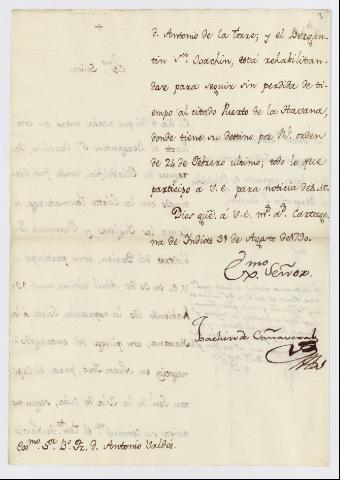 3
d. Antonio de la Tarre; y el Bergan-
tin Sn. Joachin, está rehabilitan-
dose para seguir sin perdida de ti-
empo al citado Puerto de la Havana,
donde tiene su destino por Rl. orden
de 24 de Febrero ultimo; todo lo que
participo á V.E. para noticia de S.M.
Dios gue. á V.E. ms. as. Cartage-
na de Indias 31 de Agosto de 1790.
Exmo. Señor.
Joachin de Cañaveral
Exmo. Sr. Bo. Fr. d. Antonio Valdés.